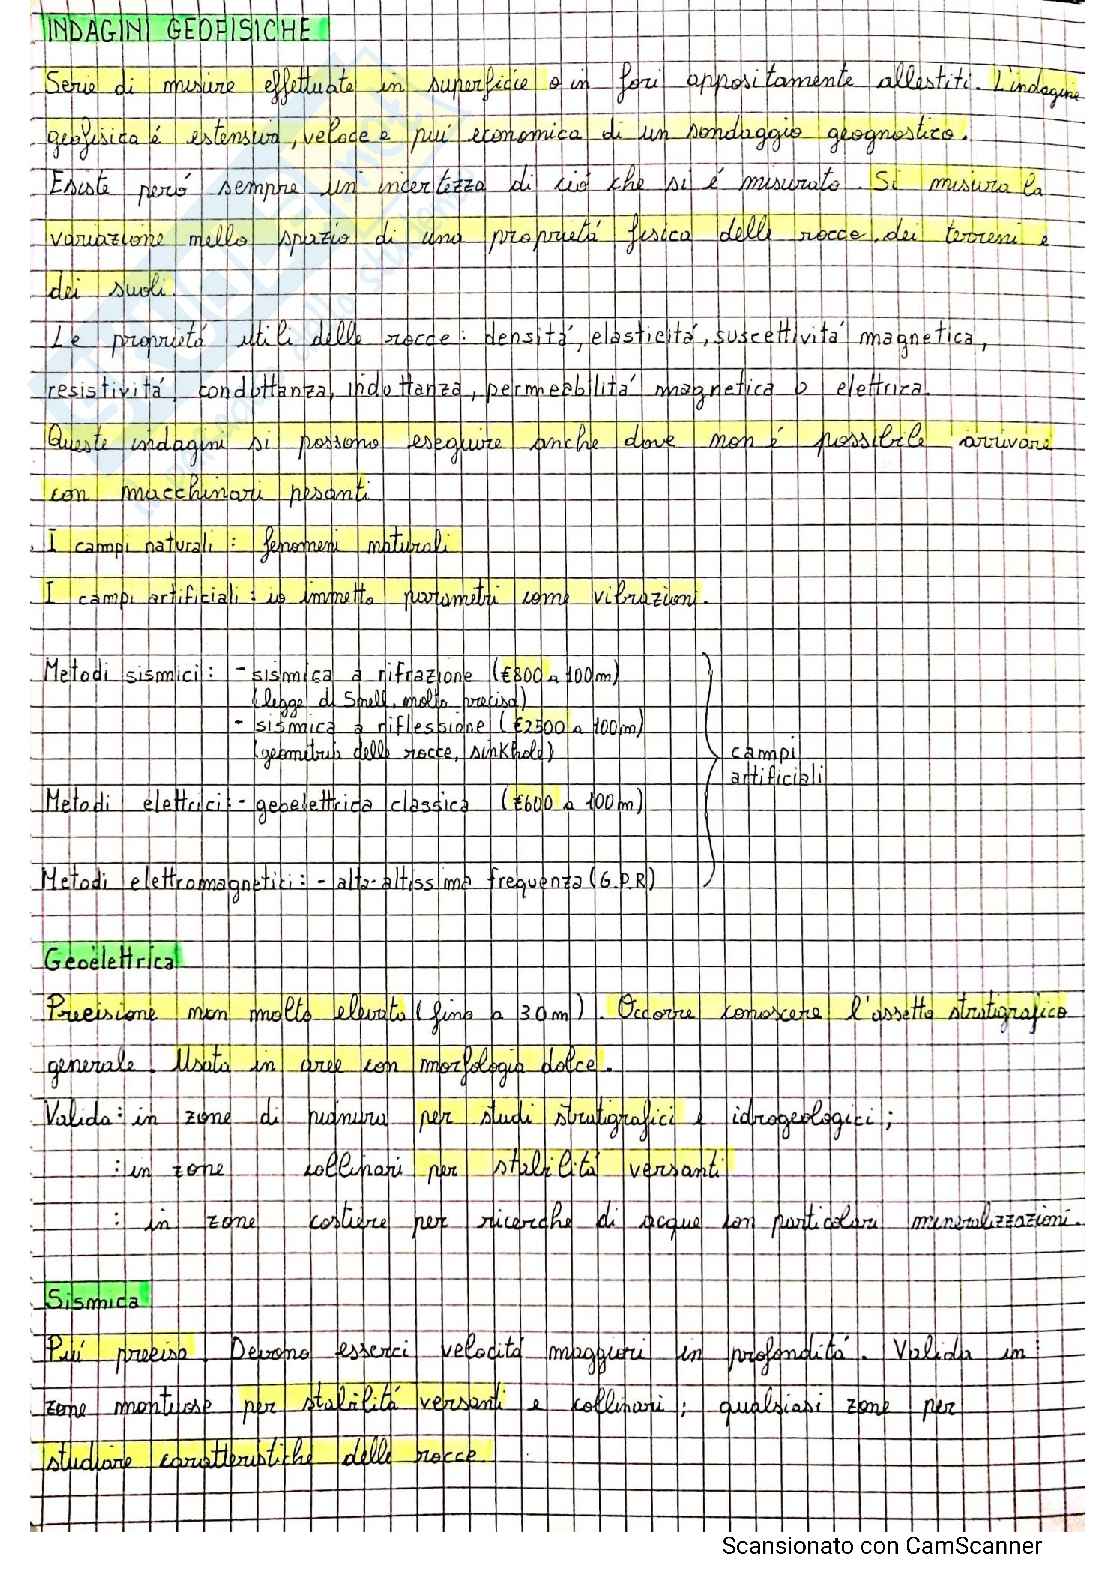 INDAGINI GEOFISICHE
Serie di misure effettuate in superficie o in fori appositamente allestiti. L'indagine
geofisica é estensiva, veloce e piú economica di un sondaggio geognostico.
Esiste peró sempre un'incertezza di ció che si é misurato. Si misura la
variazione nello spazio di una proprietá fisica delle rocce, dei terreni e
dei suoli.
Le proprietá utili delle rocce: densitá, elasticitá, suscettivitá magnetica,
resistivitá, conduttanza, induttanza, permeabilitá magnetica o elettrica.
Queste indagini si possono eseguire anche dove non é possibile arrivare
con macchinari pesanti
I campi naturali: fenomeni naturali
I campi artificiali: io immetto parametri come vibrazioni.
Metodi sismici: - sismica a rifrazione (€800 a 100m)
(legge di Snell, molto precisa)
- sismica a riflessione (€2500 a 100m)
(geometria delle rocce, sinkhole)
campi
artificiali
Metodi elettrici: - geoelettrica classica (€600 a 100m)
Metodi elettromagnetici: - alta-altissima frequenza (G.P.R)
Geoelettrica
Precisione non molto elevata (fino a 30m). Occorre conoscere l'assetto stratigrafico
generale. Usata in aree con morfologia dolce.
Valida: in zone di pianura per studi stratigrafici e idrogeologici;
: in zone collinari per stabilitá versanti
: in zone costiere per ricerche di acque con particolari mineralizzazioni.
Sismica
Piú precisa. Devono esserci velocitá maggiori in profonditá. Valida in:
zone montuose per stabilitá versanti e collinari; qualsiasi zone per
studiare caratteristiche delle rocce.
Scansionato con CamScanner